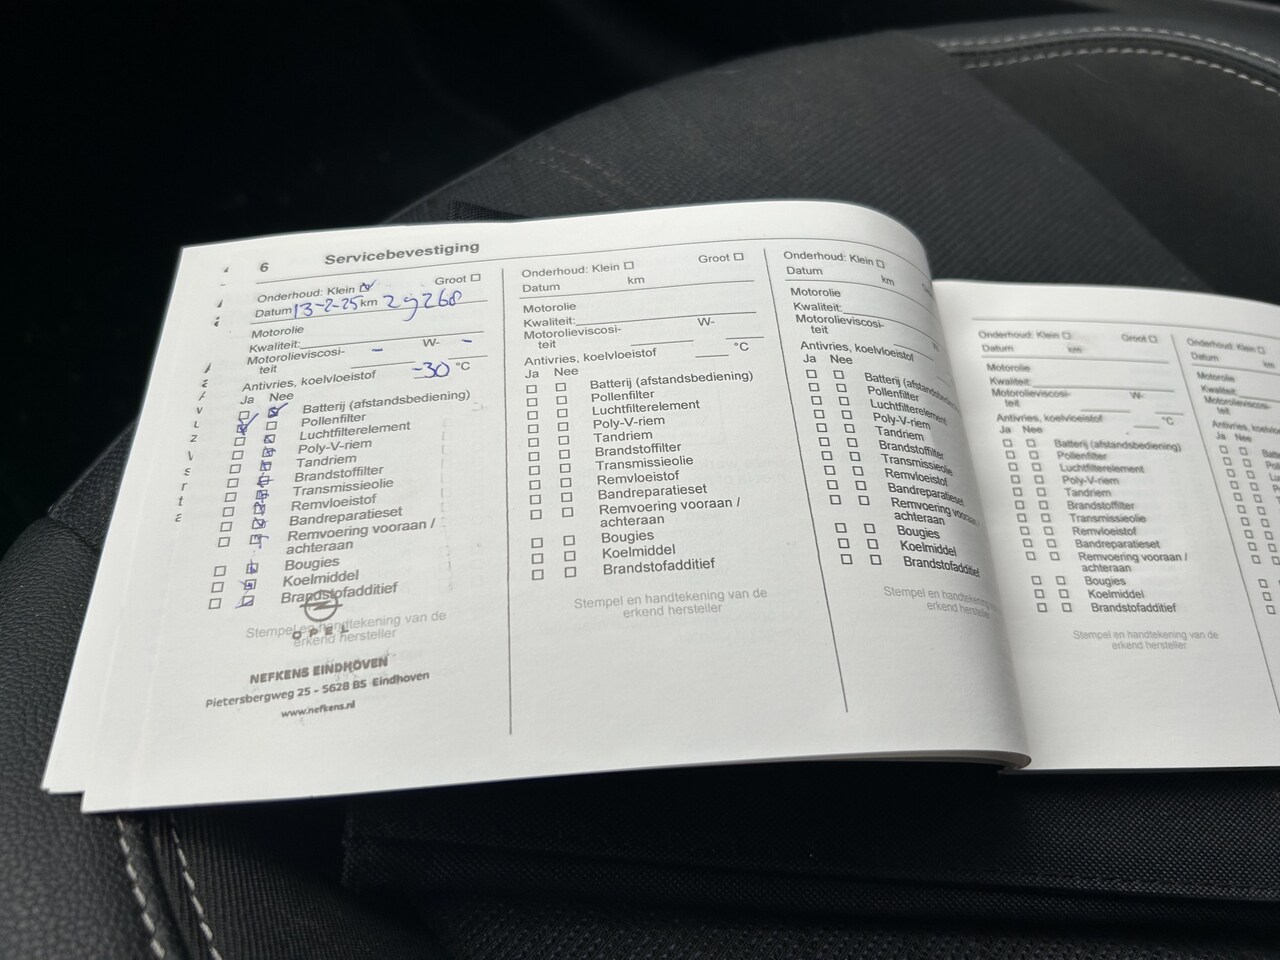 6 Servicebevestiging
Onderhoud: Klein Groot
Datum 13-2-25 km 29260
Motorolie
Kwaliteit:
Motorolieviscosi- - W- -
teit
Antivries, koelvloeistof -30 °C
Ja Nee
Batterij (afstandsbediening)
Pollenfilter
Luchtfilterelement
Poly-V-riem
Tandriem
Brandstoffilter
Transmissieolie
Remvloeistof
Bandreparatieset
Remvoering vooraan /
achteraan
Bougies
Koelmiddel
Brandstofadditief
Stempel en handtekening van de
erkend hersteller
OPEL
NEFKENS EINDHOVEN
Pietersbergweg 25 - 5628 BS Eindhoven
www.nefkens.nl
Onderhoud: Klein Groot
Datum km
Motorolie
Kwaliteit:
Motorolieviscosi- W-
teit
Antivries, koelvloeistof °C
Ja Nee
Batterij (afstandsbediening)
Pollenfilter
Luchtfilterelement
Poly-V-riem
Tandriem
Brandstoffilter
Transmissieolie
Remvloeistof
Bandreparatieset
Remvoering vooraan /
achteraan
Bougies
Koelmiddel
Brandstofadditief
Stempel en handtekening van de
erkend hersteller
Onderhoud: Klein
Datum km
Motorolie
Kwaliteit:
Motorolieviscosi-
teit
Antivries, koelvloeistof
Ja Nee
Batterij (afstandsbediening)
Pollenfilter
Luchtfilterelement
Poly-V-riem
Tandriem
Brandstoffilter
Transmissieolie
Remvloeistof
Bandreparatieset
Remvoering vooraan /
achteraan
Bougies
Koelmiddel
Brandstofadditief
Stempel en handtekening
erkend hersteller
Onderhoud: Klein Groot
Datum km
Motorolie
Kwaliteit:
Motorolieviscosi- W-
teit
Antivries, koelvloeistof °C
Ja Nee
Batterij (afstandsbediening)
Pollenfilter
Luchtfilterelement
Poly-V-riem
Tandriem
Brandstoffilter
Transmissieolie
Remvloeistof
Bandreparatieset
Remvoering vooraan /
achteraan
Bougies
Koelmiddel
Brandstofadditief
Stempel en handtekening van de
erkend hersteller
Onderhoud: Klein
Datum km
Motorolie
Kwaliteit:
Motorolieviscosi-
teit
Ja Nee